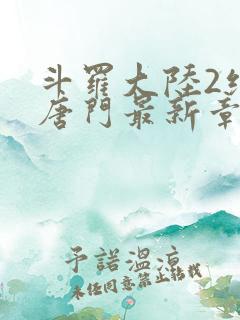 斗羅大陸2
唐門最新章
予諾溫涼
未經同意禁止轉載